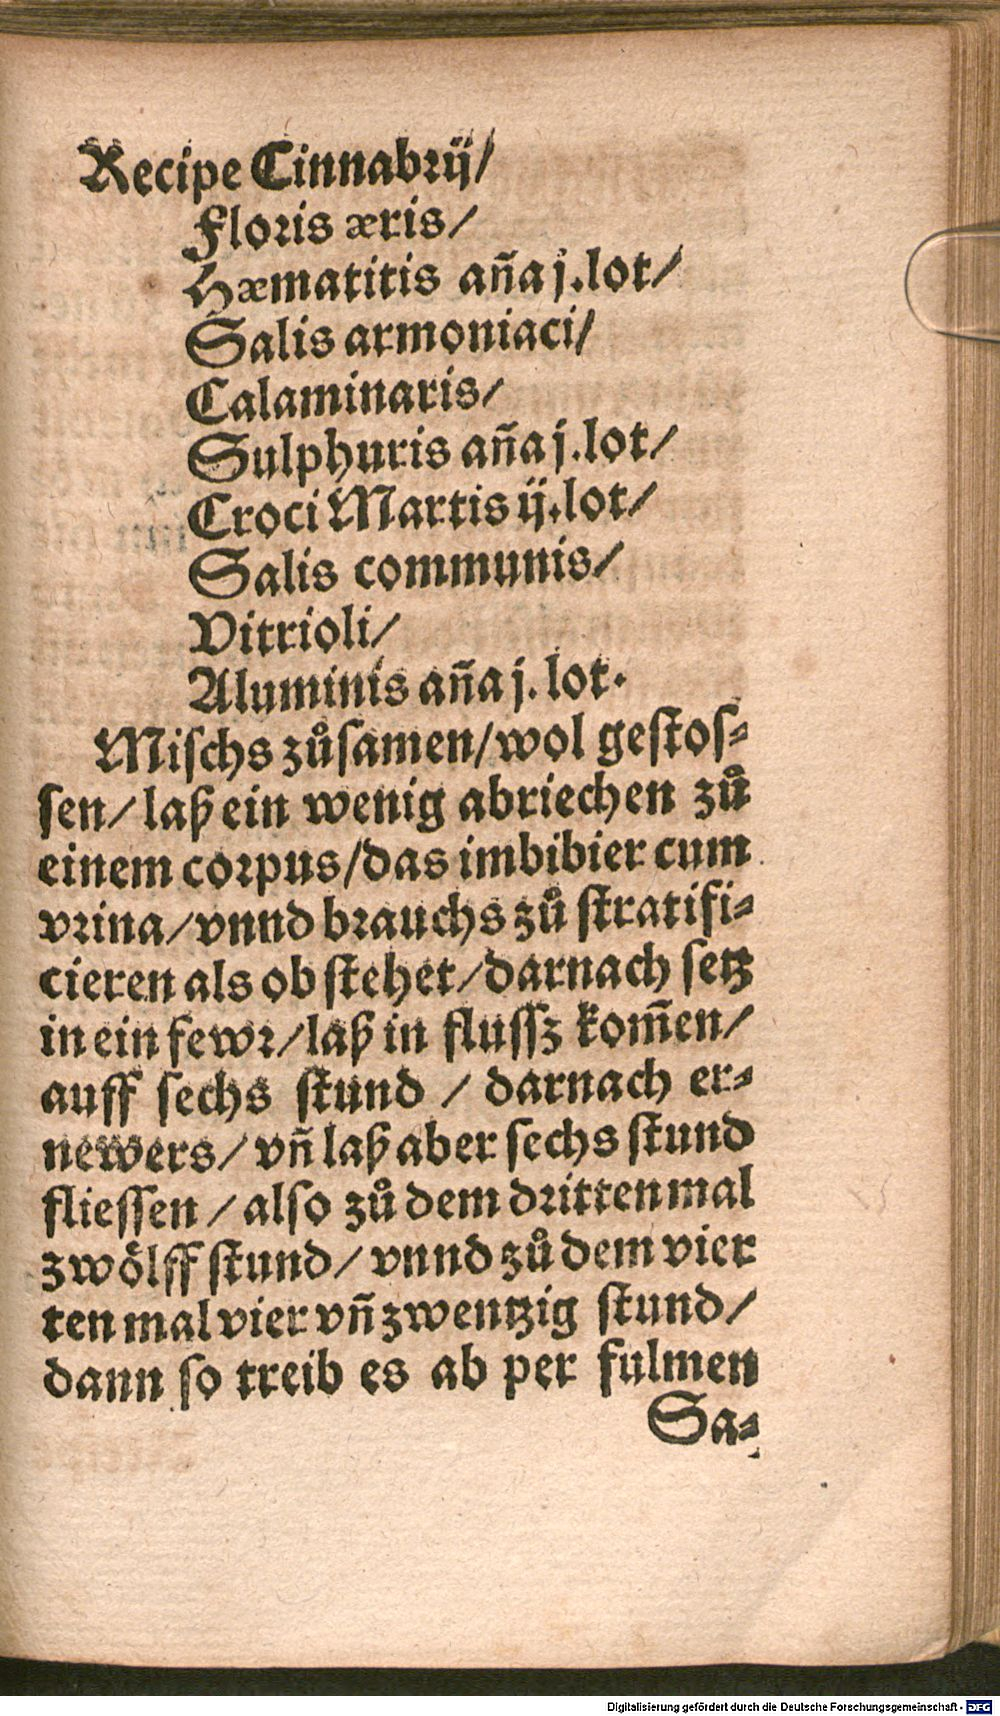 Recipe Cinnabrij/
Floris æris/
Hæmatitis añaj.lot/
Salis armoniaci/
Calaminaris/
Sulphuris añaj.lot/
Croci Martis ij.lot/
Salis communis/
Vitrioli/
Aluminis aña j. lot.
Mischs zůsamen/wol gestos-
sen/ laß ein wenig abriechen zů
einem corpus/das imbibier cum
vrina/vnnd brauchs zů stratifi-
cieren als ob stehet/darnach setz
in ein fewr/laß in flussz kom̃en/
auff sechs stund / darnach er-
newers/ vñ laß aber sechs stund
fliessen / also zů dem dritten mal
zwölff stund/ vnnd zů dem vier
ten mal vier vñ zwentzig stund/
dann so treib es ab per fulmen
Sa-
Digitalisierung gefördert durch die Deutsche Forschungsgemeinschaft - DFG